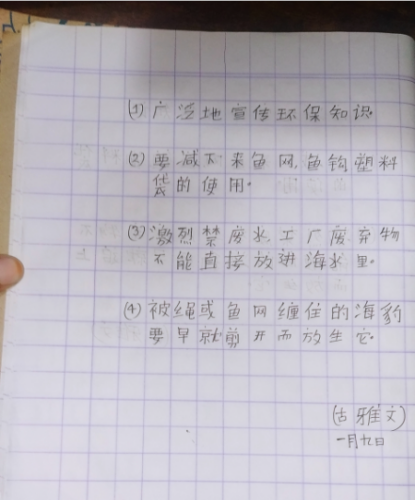 (1) 广泛地宣传环保知识.
(2) 要减下来鱼网,鱼钩塑料
袋的使用.
(3) 激烈禁废水,工厂废弃物
不能直接放进海水里.
(4) 被绳或鱼网缠住的海豹
要早就剪开而放生它.
(古雅文)
一月九日